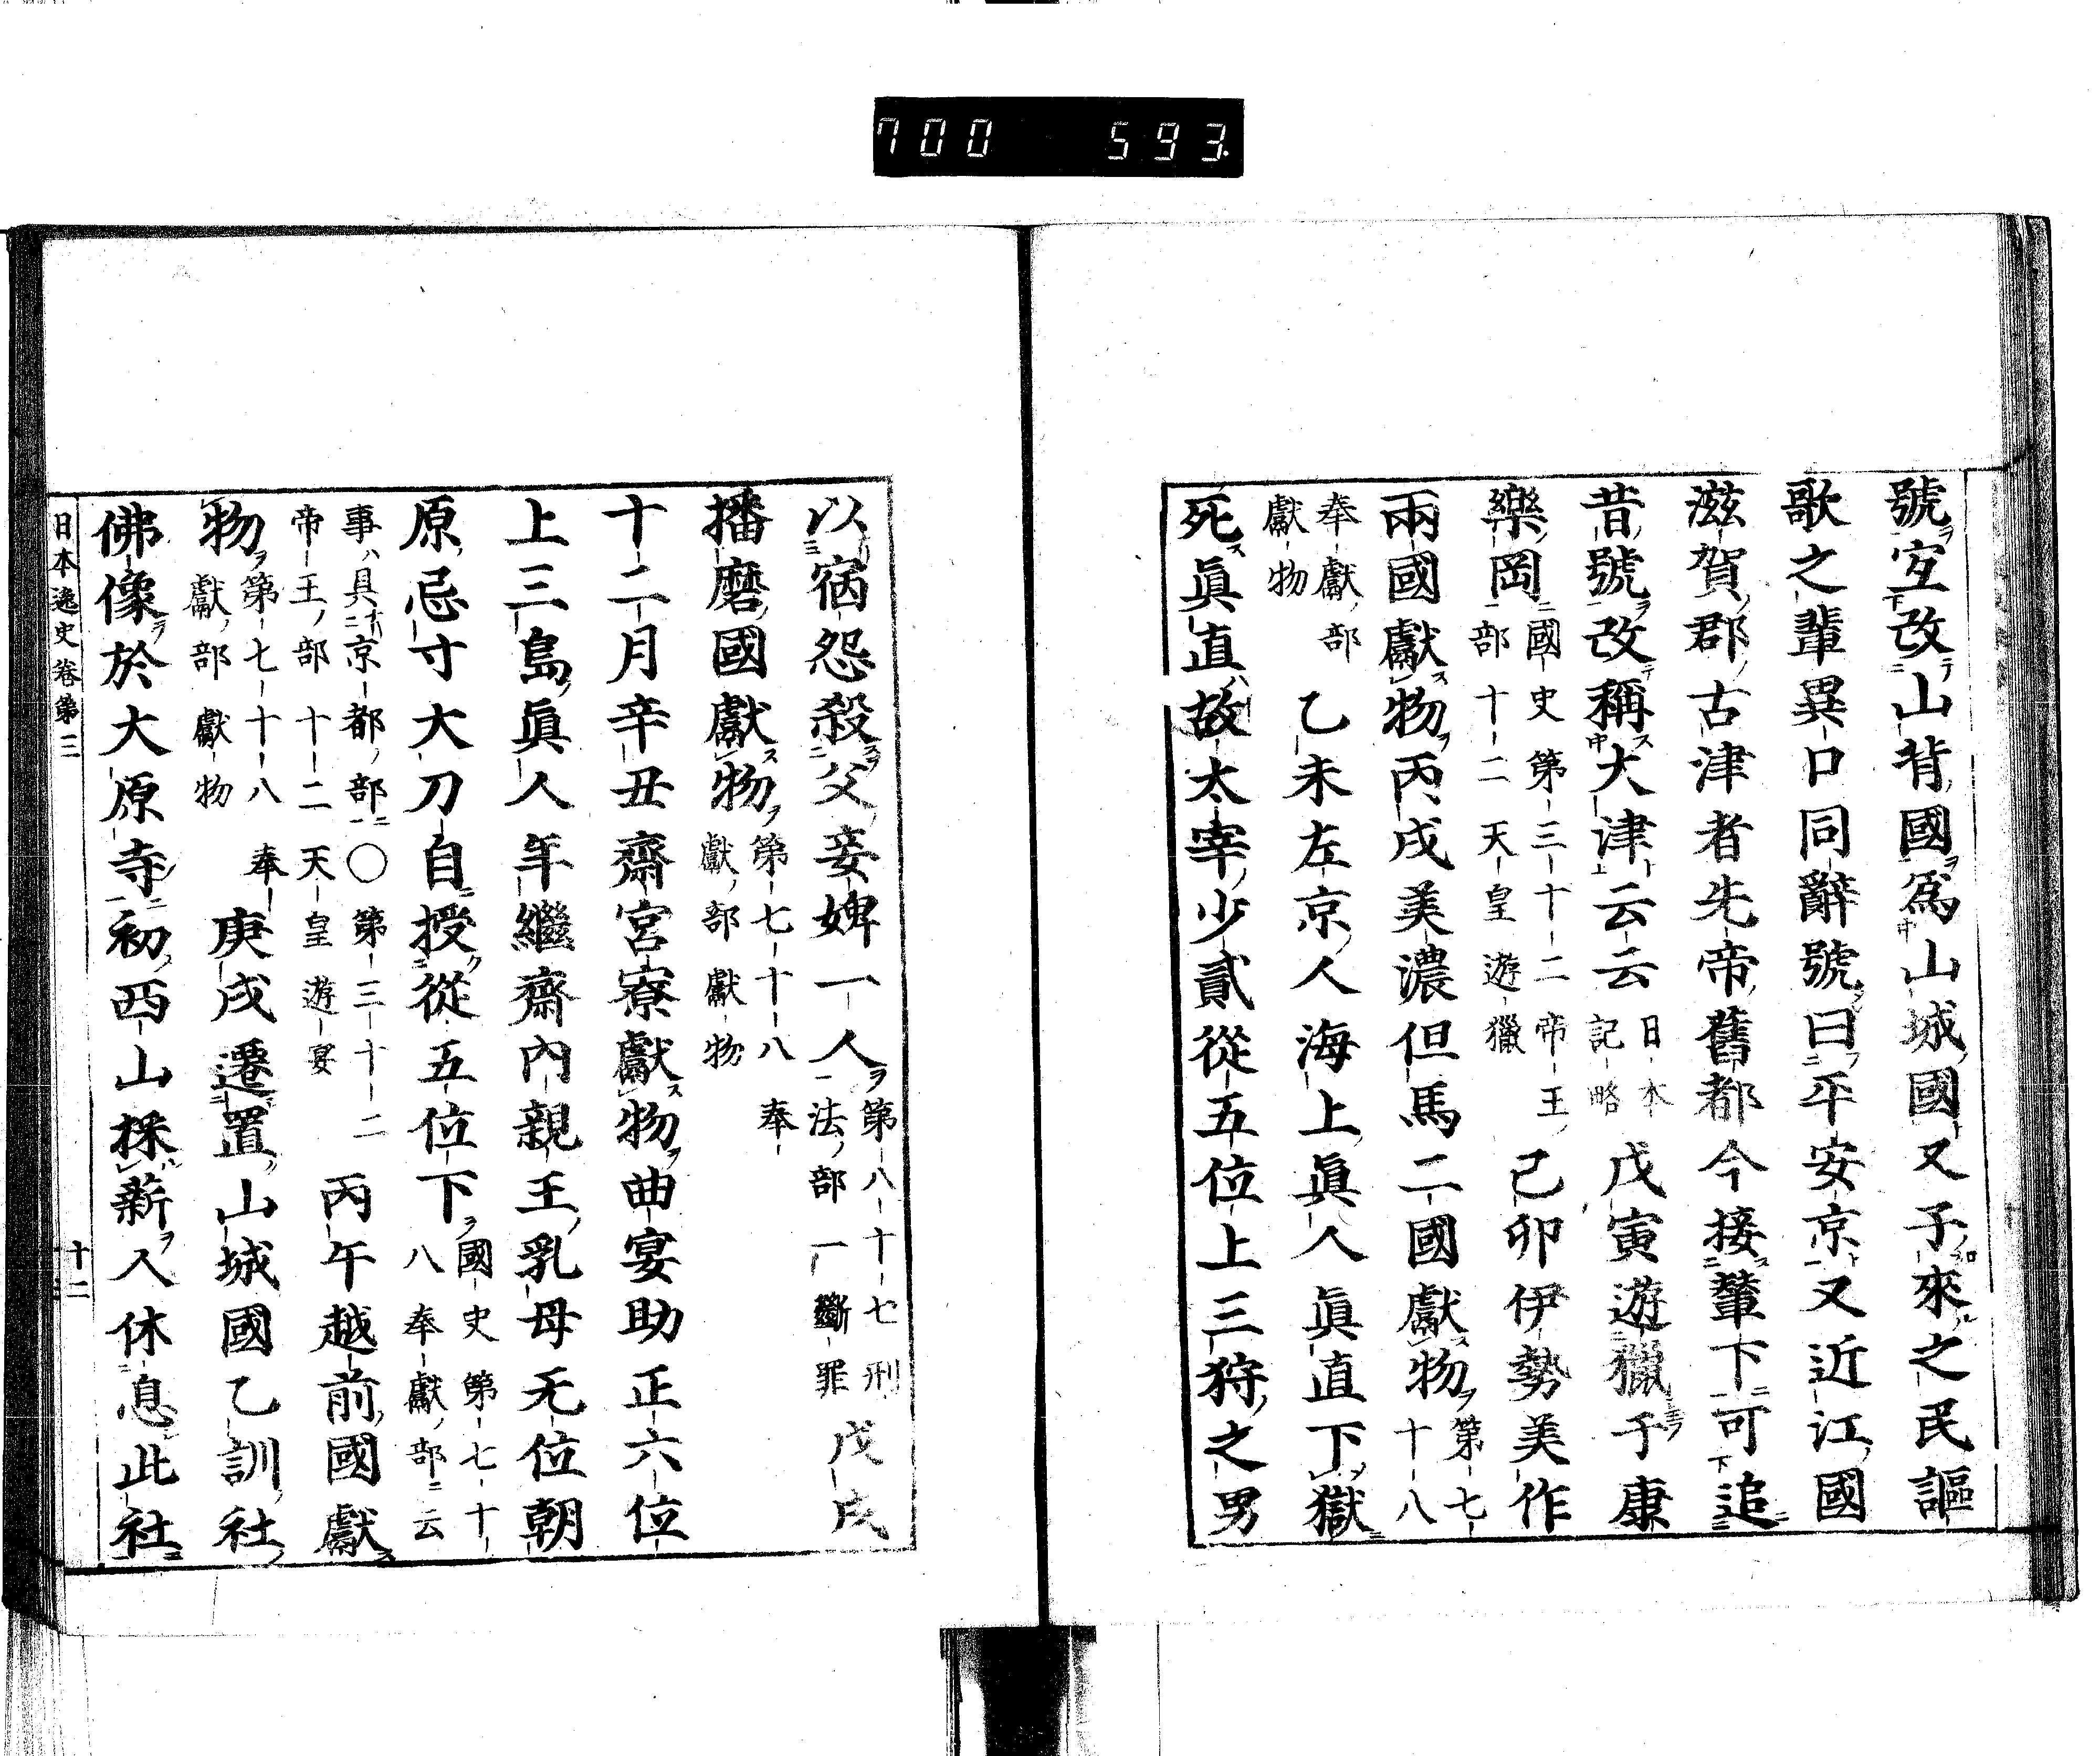 700 593
號宐改山背國爲山城國又子來之民謳
歌之輩異口同辭號曰平安京又近江國
滋賀郡古津者先帝舊都今接輦下可追
昔號改稱大津云云日本記略戊寅遊獵于康
樂岡國史第三十二帝王部十二天皇遊獵己卯伊勢美作
兩國獻物丙戌美濃但馬二國獻物第七十八
奉獻部獻物乙未左京人海上眞人眞直下獄
死眞直故太宰少貳從五位上三狩之男
以宿怨殺父妾婢一人第八十七刑法部一斷罪戊戌
播磨國獻物第七十八奉獻部獻物
十二月辛丑齋宮寮獻物曲宴助正六位
上三島眞人年繼齋內親王乳母无位朝
原忌寸大刀自授從五位下國史第七十八奉獻部云
事具京都部〇第三十二帝王部十二天皇遊宴丙午越前國獻
物第七十八奉獻部獻物庚戌遷置山城國乙訓社
佛像於大原寺初西山採薪人休息此社
日本逸史卷第三 十二